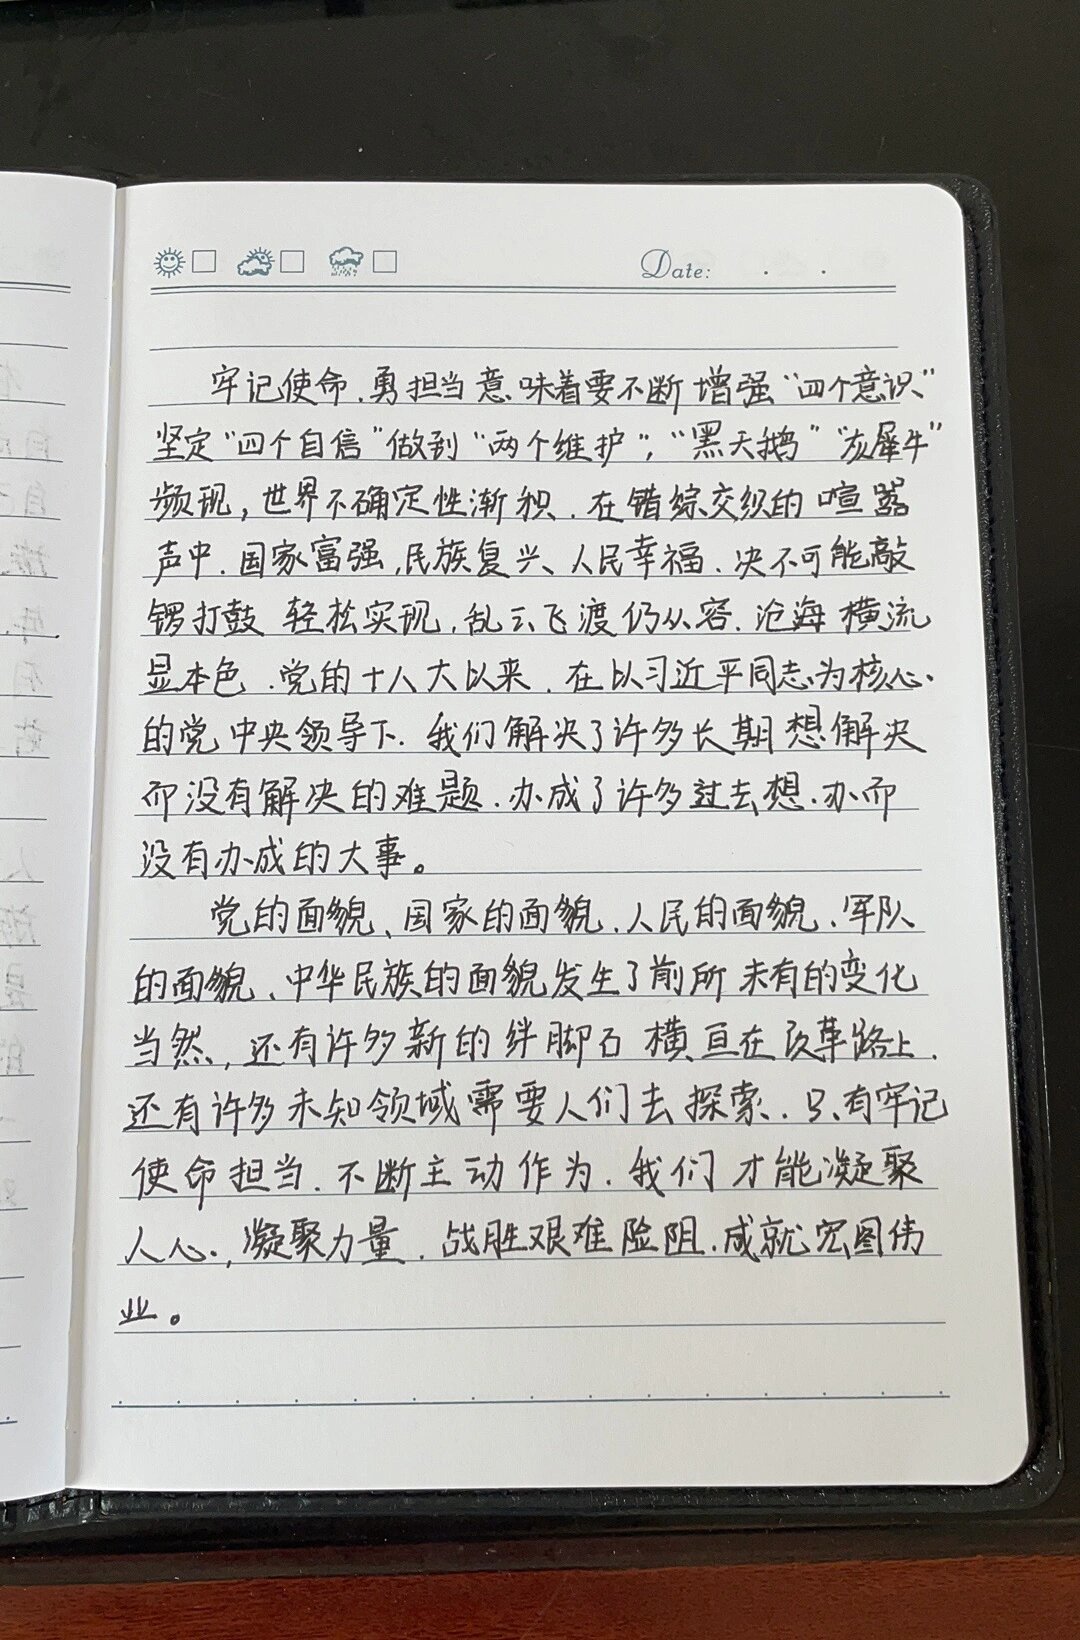 Date: . .
牢记使命、勇担当意味着要不断增强“四个意识”
坚定“四个自信”做到“两个维护”，“黑天鹅”“灰犀牛”
频现，世界不确定性渐积、在错综交织的喧嚣
声中、国家富强、民族复兴、人民幸福、决不可能敲
锣打鼓 轻松实现，乱云飞渡仍从容、沧海横流
显本色、党的十八大以来、在以习近平同志为核心
的党中央领导下、我们解决了许多长期想解决
而没有解决的难题、办成了许多过去想办而
没有办成的大事。
党的面貌、国家的面貌、人民的面貌、军队
的面貌、中华民族的面貌发生了前所未有的变化
当然，还有许多新的绊脚石横亘在改革路上、
还有许多未知领域需要人们去探索、只有牢记
使命担当、不断主动作为、我们才能凝聚
人心，凝聚力量、战胜艰难险阻、成就宏图伟
业。